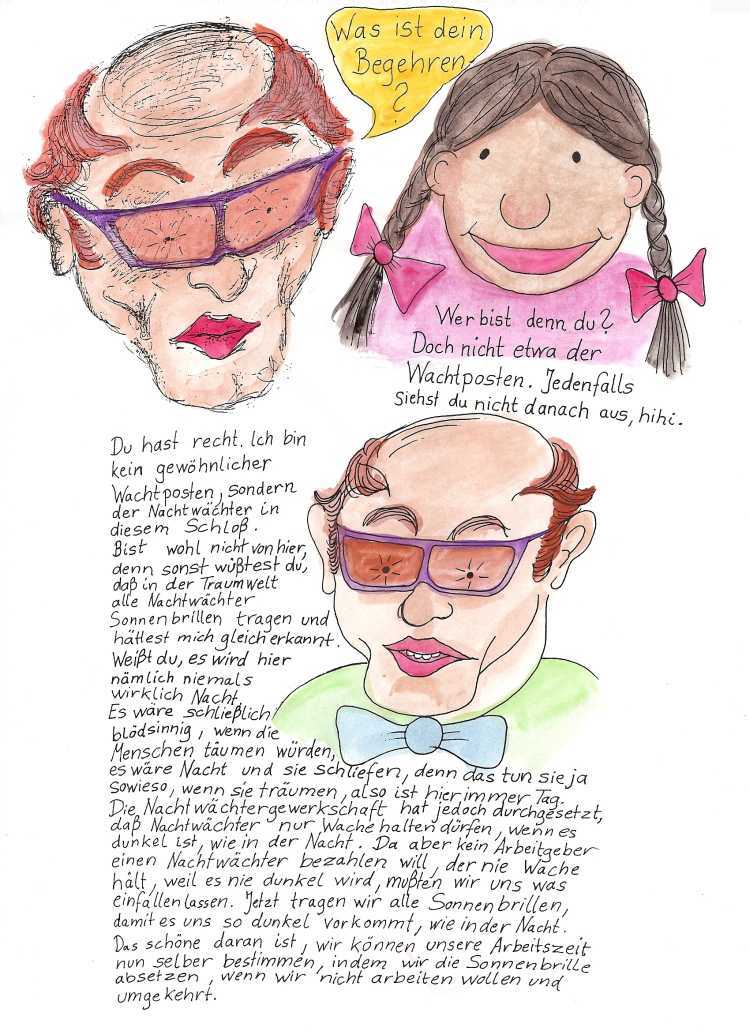 Was ist dein
Begehren
?
Wer bist denn du?
Doch nicht etwa der
Wachtposten. Jedenfalls
siehst du nicht danach aus, hihi.
Du hast recht. Ich bin
kein gewöhnlicher
Wachtposten, sondern
der Nachtwächter in
diesem Schloß.
Bist wohl nicht von hier,
denn sonst wüßtest du,
daß in der Traumwelt
alle Nachtwächter
Sonnenbrillen tragen und
hättest mich gleich erkannt.
Weißt du, es wird hier
nämlich niemals
wirklich Nacht.
Es wäre schließlich
blödsinnig, wenn die
Menschen täumen würden,
es wäre Nacht und sie schliefen, denn das tun sie ja
sowieso, wenn sie träumen, also ist hier immer Tag.
Die Nachtwächtergewerkschaft hat jedoch durchgesetzt,
daß Nachtwächter nur Wache halten dürfen, wenn es
dunkel ist, wie in der Nacht. Da aber kein Arbeitgeber
einen Nachtwächter bezahlen will, der nie Wache
hält, weil es nie dunkel wird, mußten wir uns was
einfallen lassen. Jetzt tragen wir alle Sonnenbrillen,
damit es uns so dunkel vorkommt, wie in der Nacht.
Das schöne daran ist, wir können unsere Arbeitszeit
nun selber bestimmen, indem wir die Sonnenbrille
absetzen, wenn wir nicht arbeiten wollen und
umgekehrt.